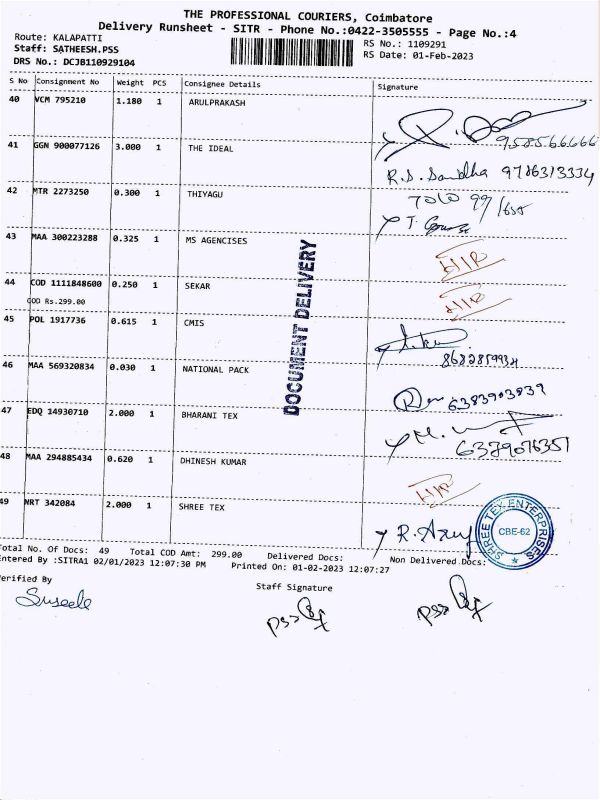 THE PROFESSIONAL COURIERS, Coimbatore
Delivery Runsheet - SITR - Phone No.:0422-3505555 - Page No.:4
Route: KALAPATTI
RS No.: 1109291
Staff: SATHEESH.PSS
RS Date: 01-Feb-2023
DRS No.: DCJB110929104
S No Consignment No Weight PCS Consignee Details Signature
40 VCM 795210 1.180 1 ARULPRAKASH
958566666
41 GGN 900077126 3.000 1 THE IDEAL
9786313334
42 MTR 2273250 0.300 1 THIYAGU
43 MAA 300223288 0.325 1 MS AGENCISES
44 COD 1111848600 0.250 1 SEKAR
COD Rs.299.00
45 POL 1917736 0.615 1 CMIS
46 MAA 569320834 0.030 1 NATIONAL PACK
6383903839
47 EDQ 14930710 2.000 1 BHARANI TEX
6379076351
48 MAA 294885434 0.620 1 DHINESH KUMAR
49 NRT 342084 2.000 1 SHREE TEX
DOCUMENT DELIVERY
SHREE TEX ENTERPRISES
CBE-62
Total No. Of Docs: 49 Total COD Amt: 299.00 Delivered Docs: Non Delivered Docs:
Entered By :SITRA1 02/01/2023 12:07:30 PM Printed On: 01-02-2023 12:07:27
Verified By
Staff Signature